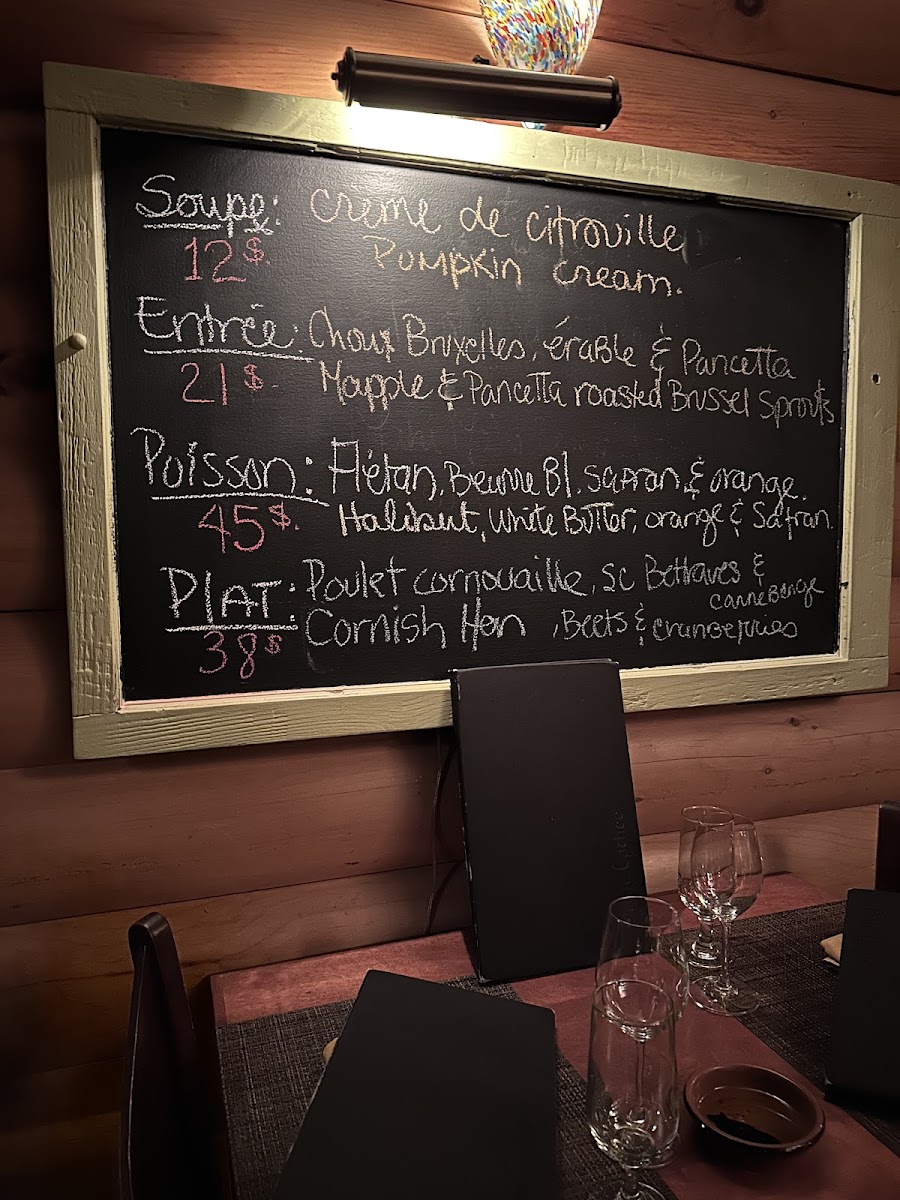 Soupe: Crème de citrouille
12$ Pumpkin cream.
Entrée: Choux Bruxelles, érable & Pancetta
21$ Mapple & Pancetta roasted Brussel Sprouts
Poisson: Flétan, Beurre Bl, Safran, & orange.
45$ Halibut, White Butter, orange & Safran.
PLAT: Poulet cornouaille, sc Bettraves &
canneberge
38$ Cornish Hen, Beets & cranberries